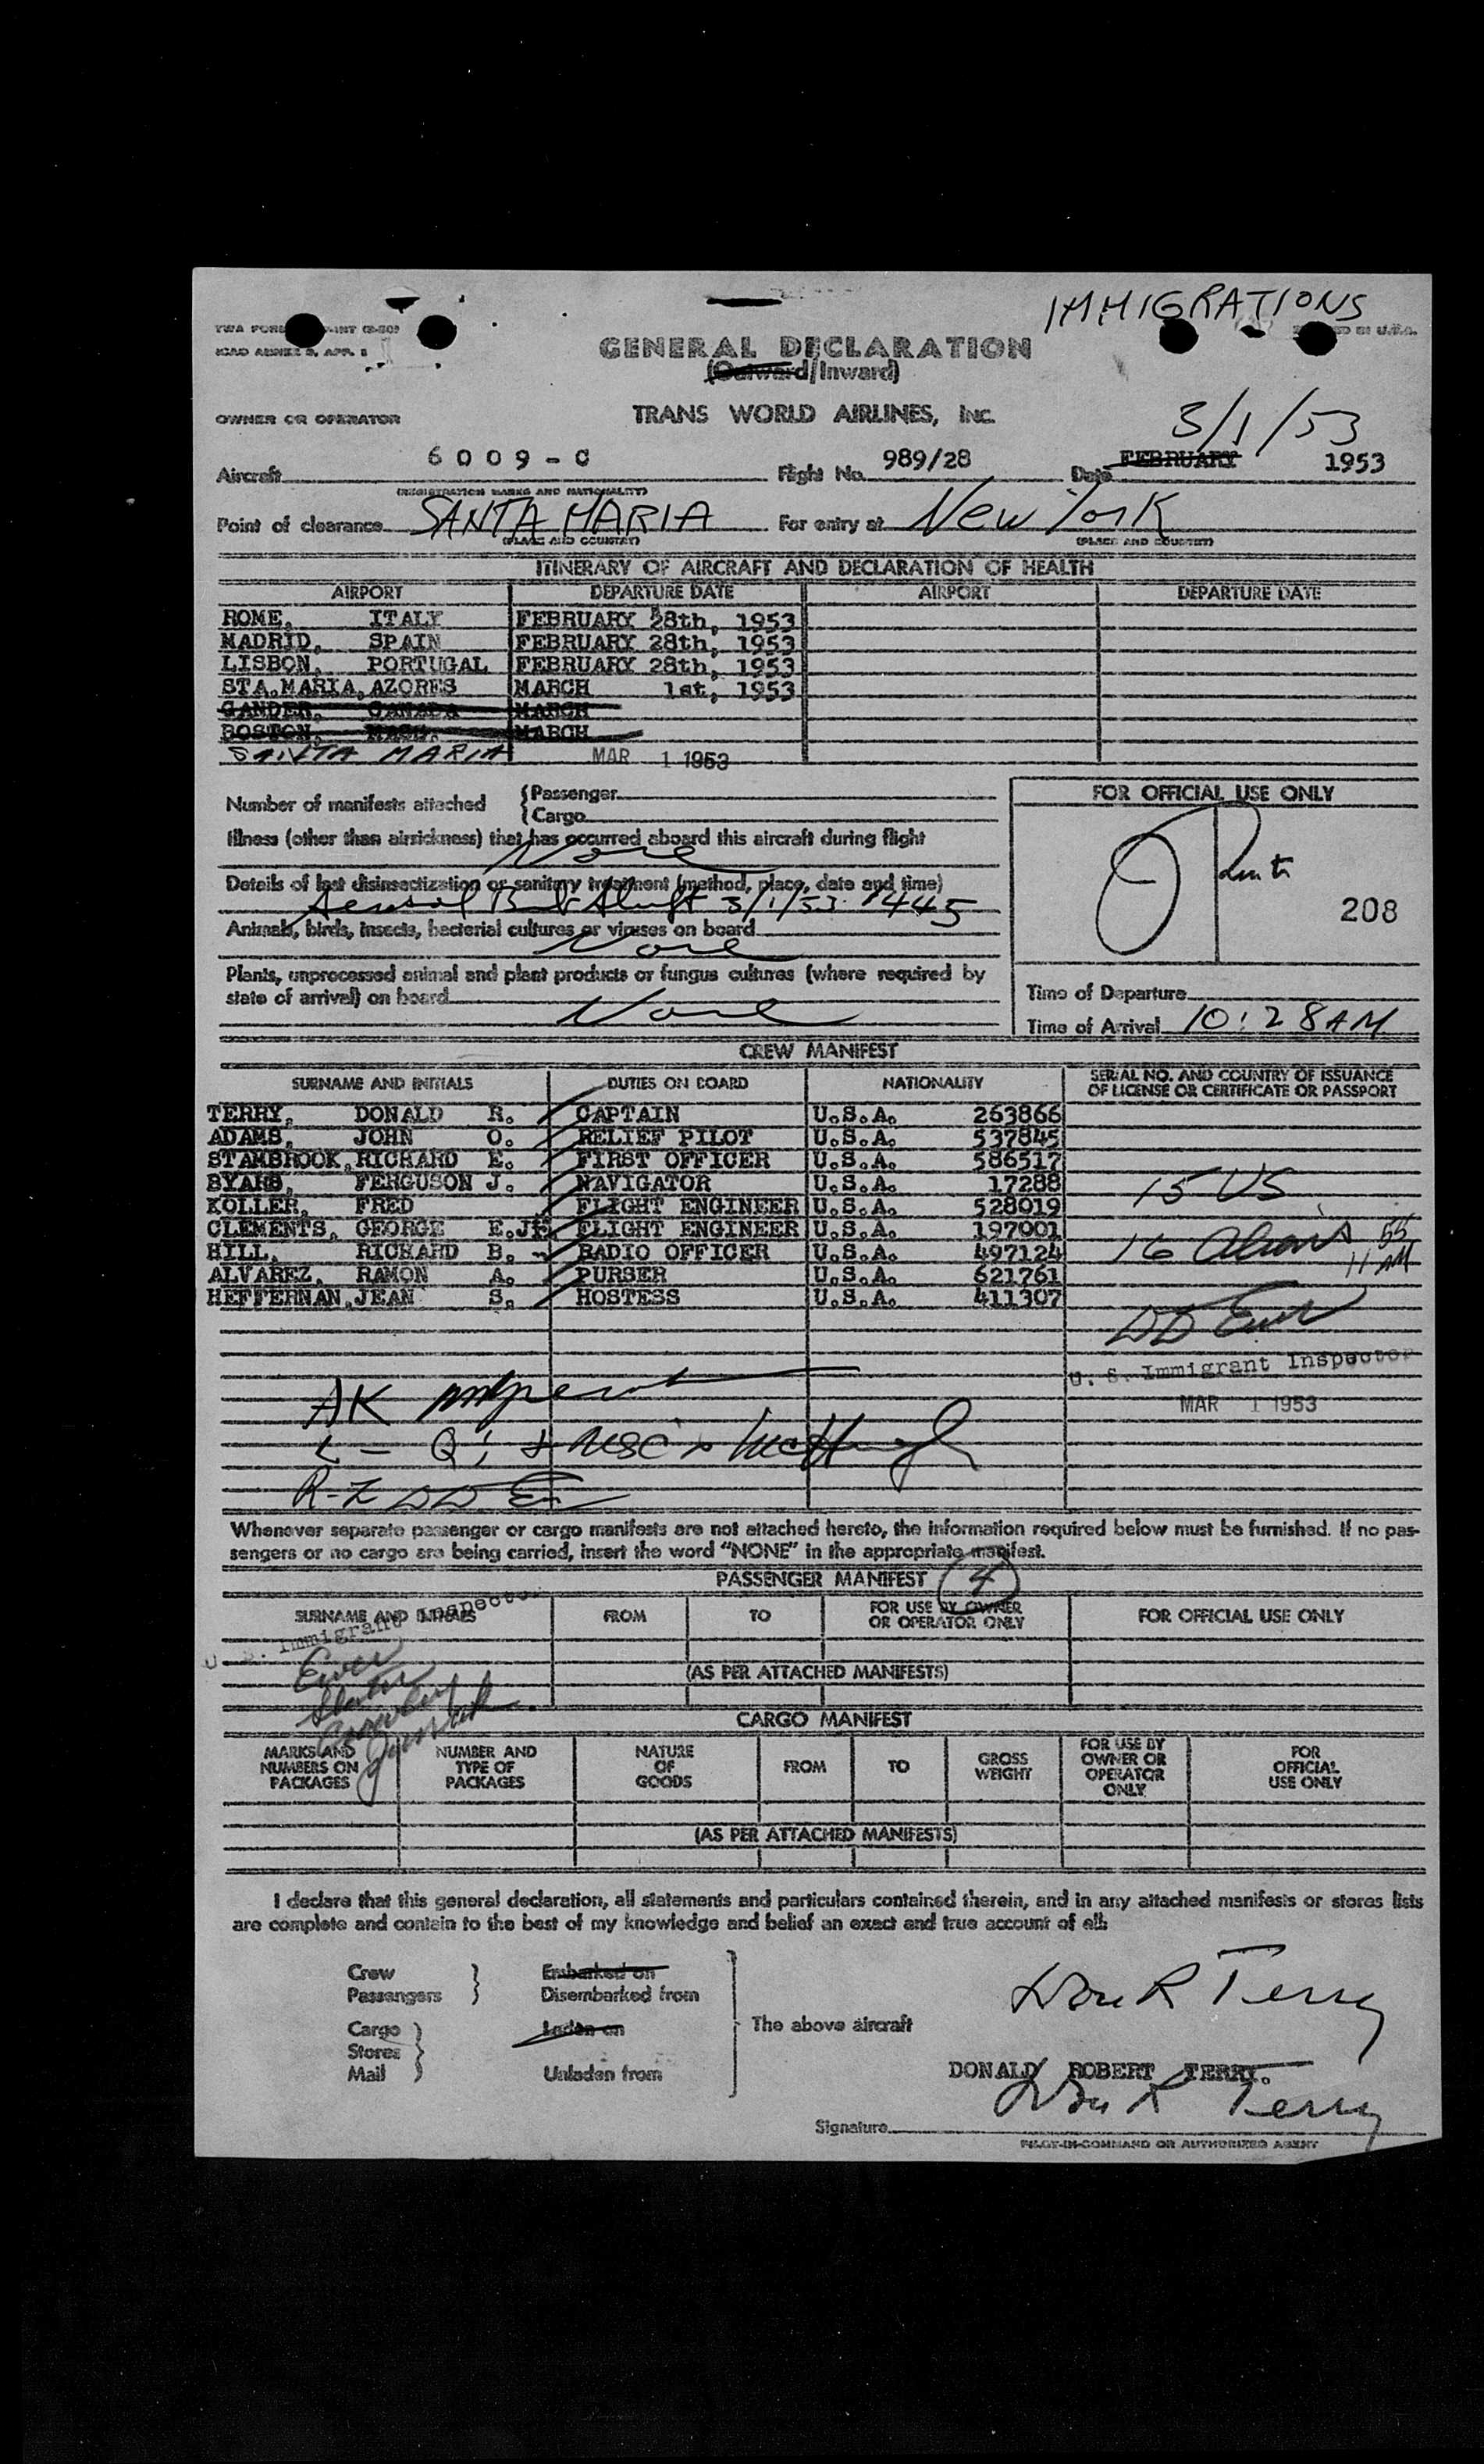 IMMIGRATIONS
GENERAL DECLARATION
(Outward/Inward)
OWNER OR OPERATOR TRANS WORLD AIRLINES, INC.
3/1/53
Aircraft 6009-C Flight No. 989/28 Date FEBRUARY 1953
(REGISTRATION MARKS AND NATIONALITY)
Point of clearance SANTA MARIA For entry at New York
(PLACE AND COUNTRY) (PLACE AND COUNTRY)
ITINERARY OF AIRCRAFT AND DECLARATION OF HEALTH
AIRPORT DEPARTURE DATE AIRPORT DEPARTURE DATE
ROME, ITALY FEBRUARY 28th, 1953
MADRID, SPAIN FEBRUARY 28th, 1953
LISBON, PORTUGAL FEBRUARY 28th, 1953
STA.MARIA,AZORES MARCH 1st, 1953
GANDER, CANADA MARCH
BOSTON, MASS. MARCH
SANTA MARIA MAR 1 1953
Number of manifests attached {Passenger
{Cargo
Illness (other than airsickness) that has occurred aboard this aircraft during flight
None
Details of last disinsectization or sanitary treatment (method, place, date and time)
Aerosol 3/1/53 1445
Animals, birds, insects, bacterial cultures or viruses on board
None
Plants, unprocessed animal and plant products or fungus cultures (where required by
state of arrival) on board
None
FOR OFFICIAL USE ONLY
208
Time of Departure
Time of Arrival 10:28AM
CREW MANIFEST
SURNAME AND INITIALS DUTIES ON BOARD NATIONALITY SERIAL NO. AND COUNTRY OF ISSUANCE
OF LICENSE OR CERTIFICATE OR PASSPORT
TERRY, DONALD R. CAPTAIN U.S.A. 263866
ADAMS, JOHN O. RELIEF PILOT U.S.A. 537845
STAMBROOK,RICHARD E. FIRST OFFICER U.S.A. 586517
BYARS, FERGUSON J. NAVIGATOR U.S.A. 17288
KOLLER, FRED FLIGHT ENGINEER U.S.A. 528019
CLEMENTS, GEORGE E.JR. FLIGHT ENGINEER U.S.A. 197001
HILL, RICHARD B. RADIO OFFICER U.S.A. 497124
ALVAREZ, RAMON A. PURSER U.S.A. 621761
HEFFERNAN,JEAN S. HOSTESS U.S.A. 411307
15 US
16 Aliens 11 55 AM
U. S. Immigrant Inspector
MAR 1 1953
AK
L - Q
R-Z
Whenever separate passenger or cargo manifests are not attached hereto, the information required below must be furnished. If no pas-
sengers or no cargo are being carried, insert the word "NONE" in the appropriate manifest.
PASSENGER MANIFEST 4
SURNAME AND INITIALS FROM TO FOR USE BY OWNER
OR OPERATOR ONLY FOR OFFICIAL USE ONLY
U. S. Immigrant Inspector
(AS PER ATTACHED MANIFESTS)
CARGO MANIFEST
MARKS AND
NUMBERS ON
PACKAGES
NUMBER AND
TYPE OF
PACKAGES
NATURE
OF
GOODS
FROM
TO
GROSS
WEIGHT
FOR USE BY
OWNER OR
OPERATOR
ONLY
FOR
OFFICIAL
USE ONLY
(AS PER ATTACHED MANIFESTS)
I declare that this general declaration, all statements and particulars contained therein, and in any attached manifests or stores lists
are complete and contain to the best of my knowledge and belief an exact and true account of all:
Crew } Embarked on
Passengers } Disembarked from
Cargo } Laden on
Stores
Mail } Unladen from
The above aircraft
Don R Terry
DONALD ROBERT TERRY.
Don R Terry
Signature
PILOT-IN-COMMAND OR AUTHORIZED AGENT